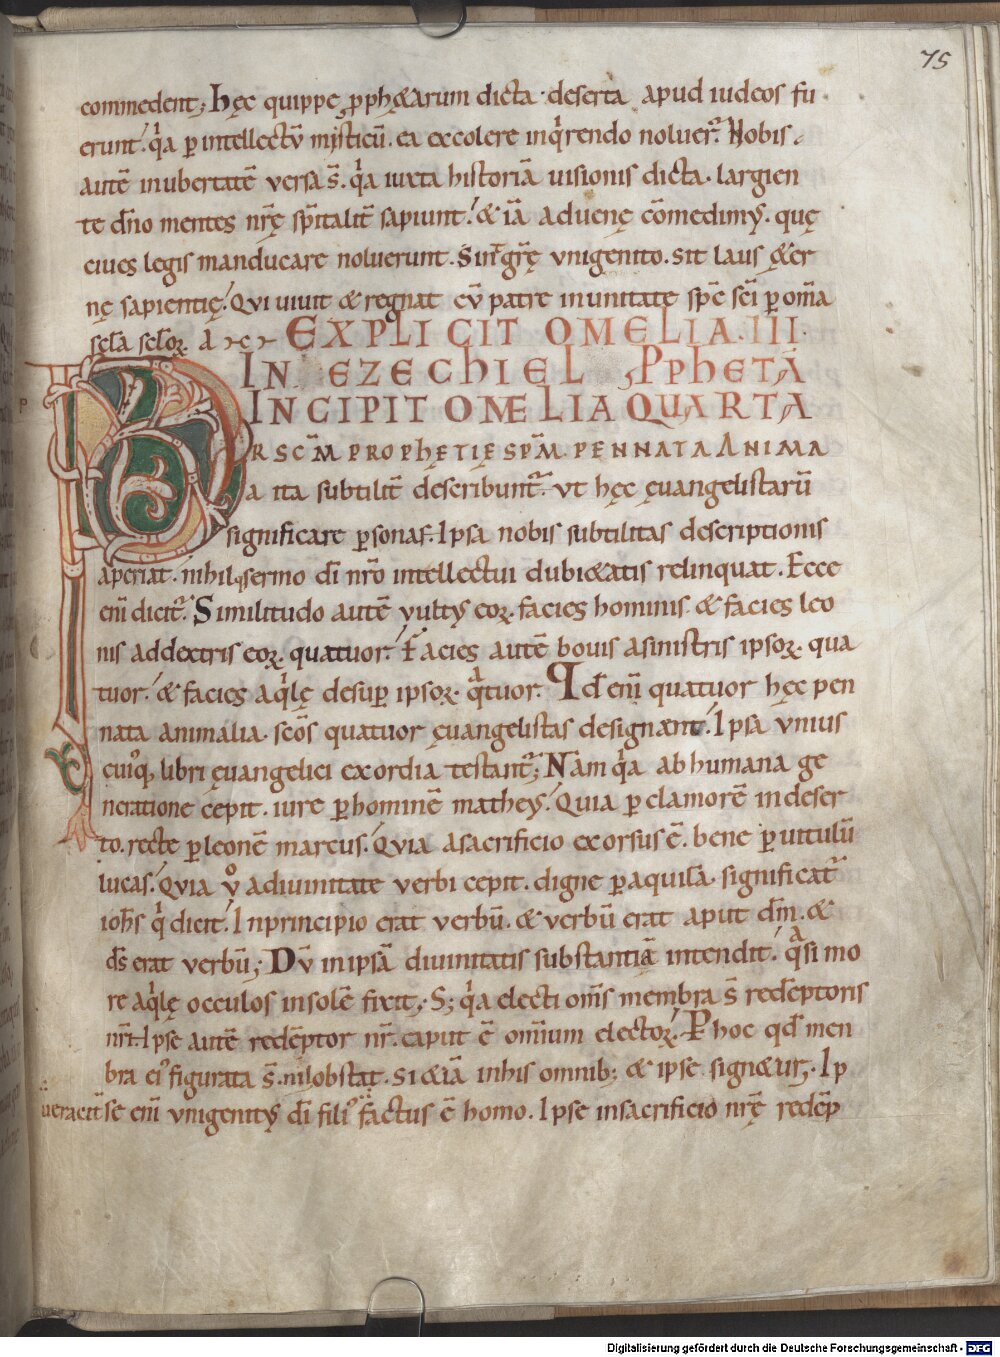 75
commedent; hęc quippe ꝓph&arum dicta deserta apud iudeos fu
erunt. q̓a ꝑ intellectū mysticū ea excolere inq̓rendo noluer̄. Nobis
autē in ubertatē versa s̄. q̓a iuxta historiā uisionis dicta. largien
te dn̄o mentes nr̄ę sp̄italit̄ sapiunt. & iā aduenę cōmedimꝰ. quę
ciues legis manducare noluerunt. Sit grę vnigenito. sit laus ęt̄er
nę sapientię. Qui uiuit & regnat cū patre in unitate sp̄c sc̄i ꝑ om̄a
scl̄a scl̄oꝝ
EXPLICIT OMELIA III
IN EZECHIEL PPHETĀ
INCIPIT OMELIA QUARTA
P
RSCM̄ PROPHĘTIĘ SPM̄ PENNATA ANIMA
a ita subtilit̄ describunt̄. vt hęc ęuangelistarū
significare ꝑsonas. Ipsa nobis subtilitas descriptionis
aperiat. nihil qͥ sermo dī nr̄o intellectui dubi&atis relinquat. Ecce
enī dicit̄. Similitudo autē vultꝰ eoꝝ. facies hominis. & facies leo
nis ad dextris eoꝝ quatuor. Facies autē bouis a sinistris ipsoꝝ. qua
tuor. & facies aq̓lę desuꝑ ipsoꝝ. qᵃtuor. Qd̄ enī quatuor hęc pen
nata animalia. sc̄os quatuor ęuangelistas designant. Ipsa vnius
cuiꝰq; libri ęuangelici exordia testant̄; Nam q̓a ab humana ge
neratione cępit. iure ꝑ hominē matheꝰ. Quia ꝑ clamorē in deser
to. recte ꝑ leonē marcus. Quia a sacrificio exorsus ē. bene ꝑ uitulū
lucas. Quia vͦ a diuinitate verbi cepit. digne ꝑ aquila significat̄
ioh̄s q̓ dicit. In principio erat verbū. & verbū erat aput dm̄. &
ds̄ erat verbū; Dū in ipsā diuinitatis substantiā intendit. qᵃsi mo
re aq̓lę occulos in solē fixit. S; q̓a electi om̄s membra s̄ redēptoris
nr̄i. Ipse autē redēptor nr̄. caput ē omnium electoꝝ. P hoc qd̄ men
bra eiꝰ figurata s̄. nil obstat. si &iā in his omnib; & ipse sign&ur. Ip
ueracit̄
se enī vnigenitꝰ dī filiꝰ factus ē homo. Ipse in sacrificio nr̄ę redēp
Digitalisierung gefördert durch die Deutsche Forschungsgemeinschaft - DFG